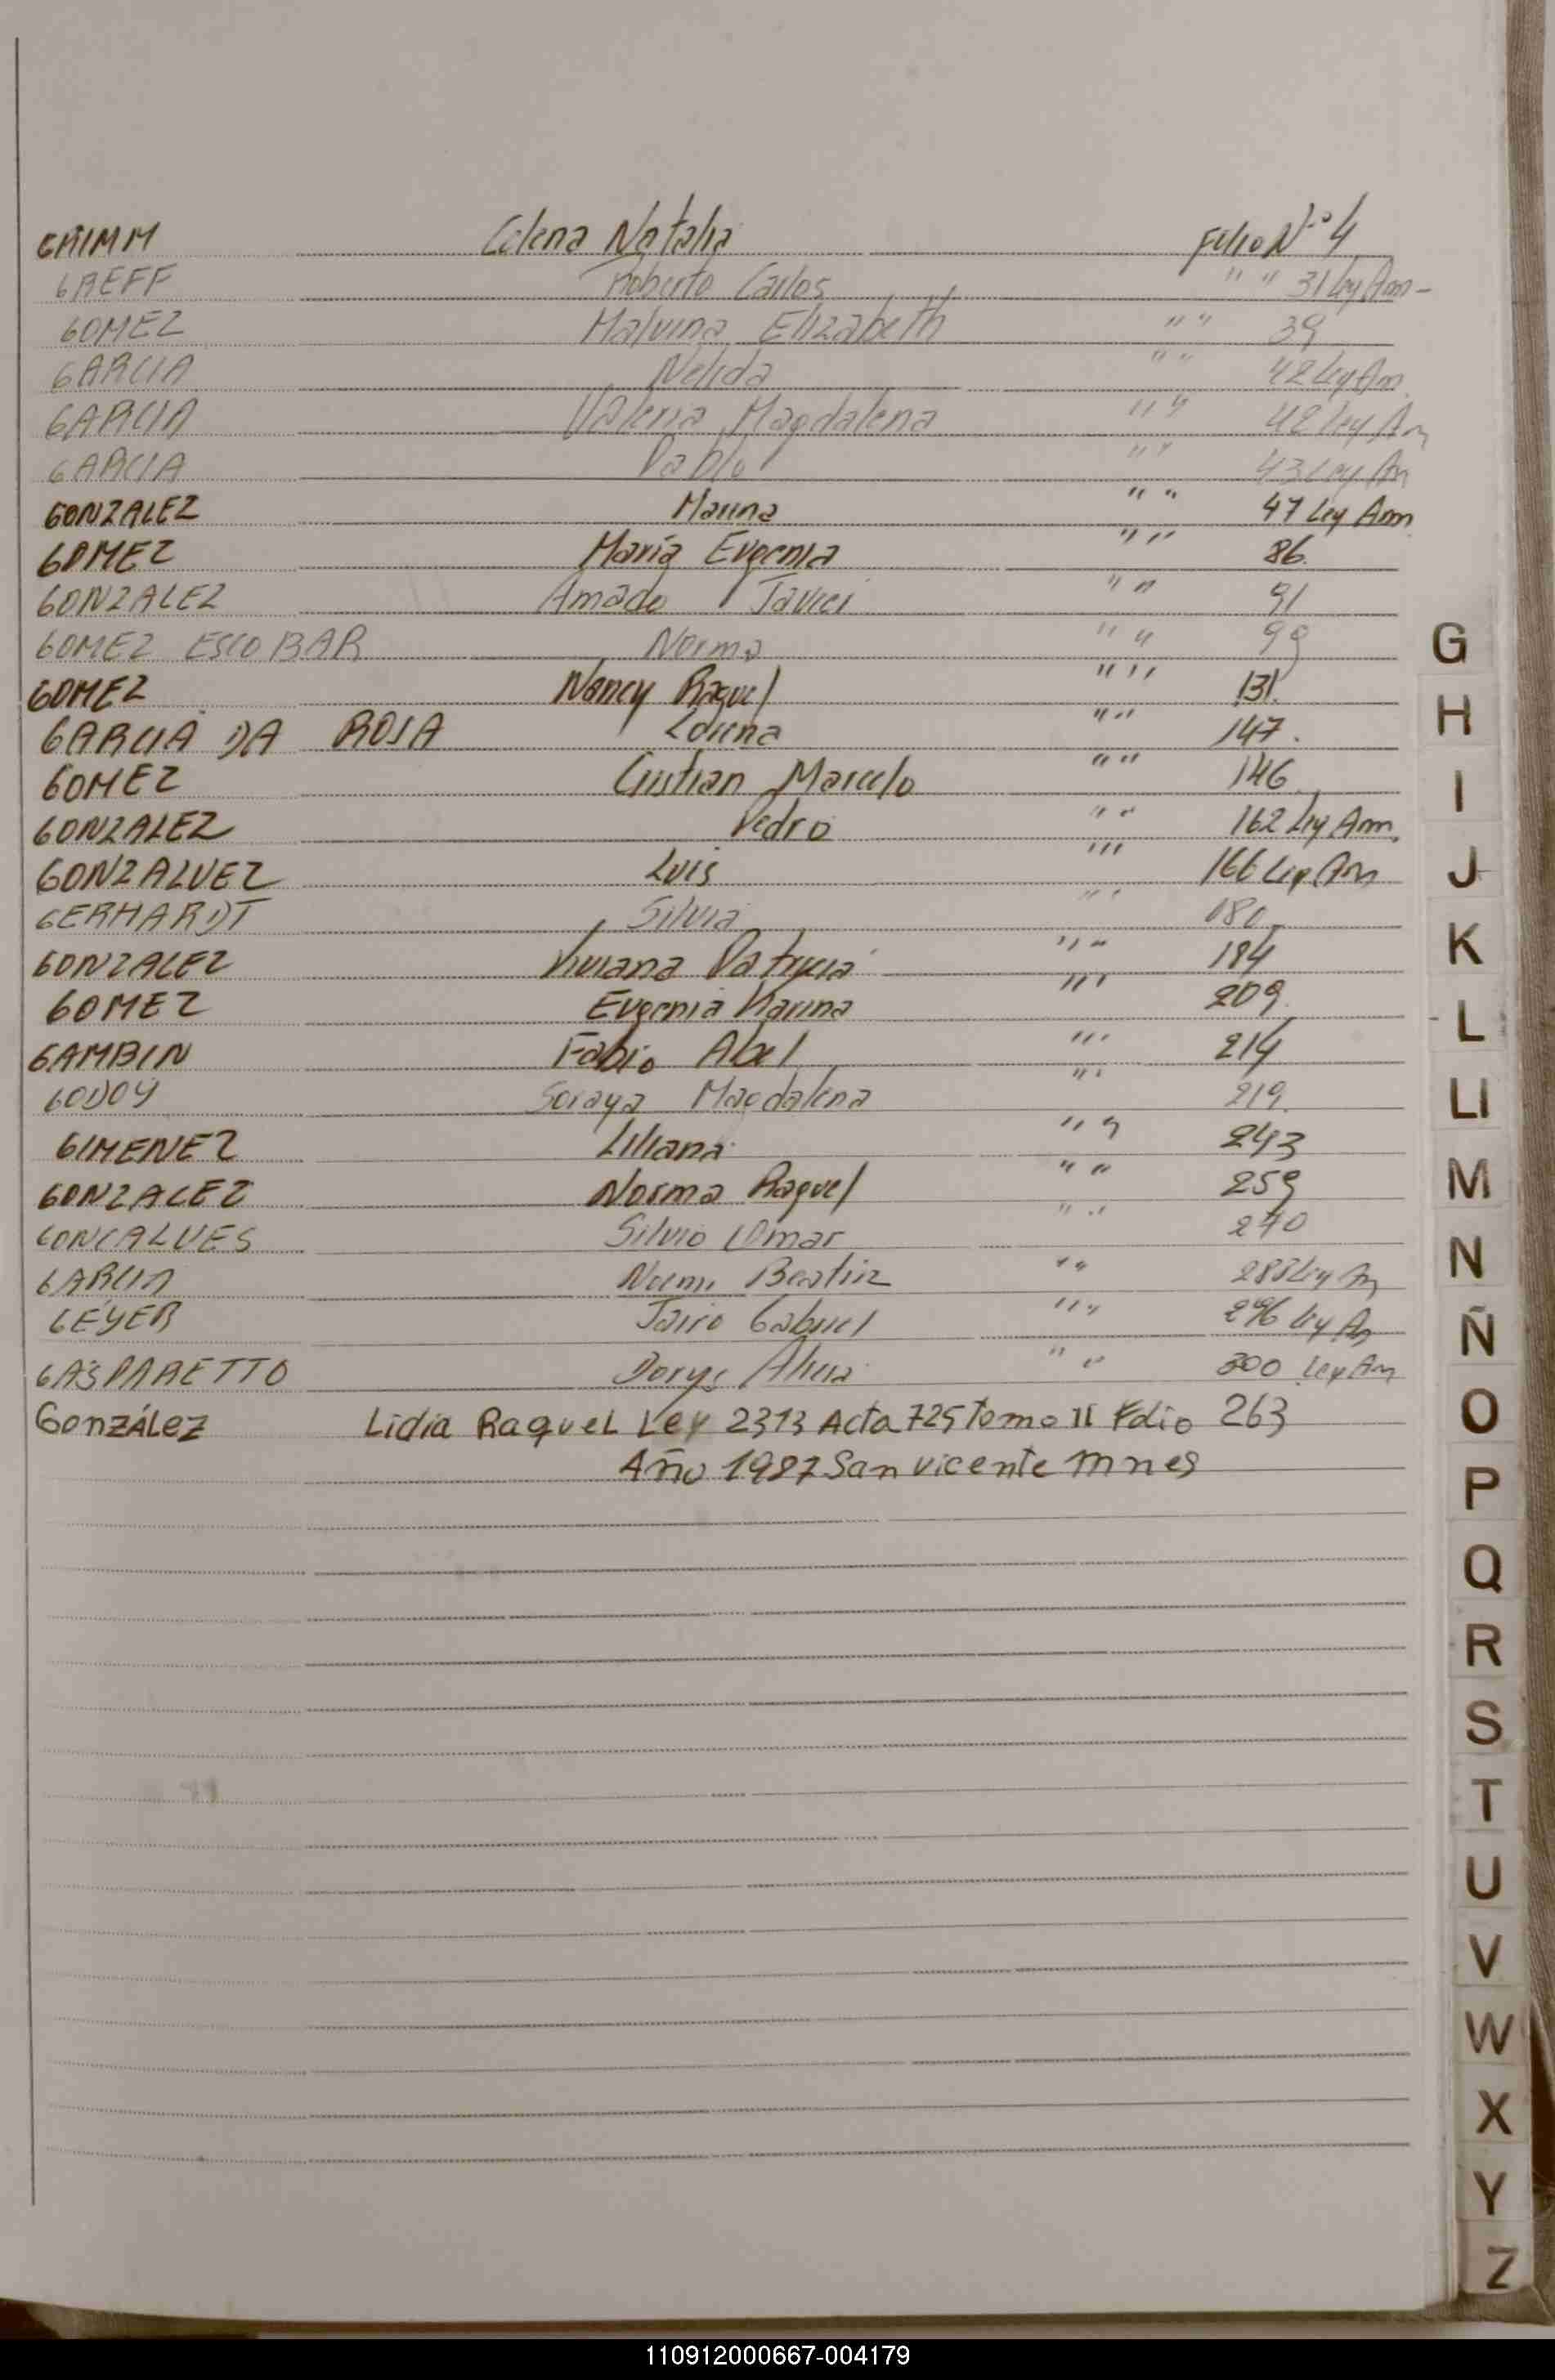 GRIMM Celena Natalia Folio Nº 4
GREFF Roberto Carlos " " 31 Ley Am -
GOMEZ Malvina Elizabeth " " 39
GARCIA Nelida " " 42 Ley Am.
GARCIA Valeria Magdalena " " 42 Ley Am
GARCIA Pablo " " 43 Ley Am
GONZALEZ Marina " " 47 Ley Am
GOMEZ María Eugenia " " 86.
GONZALEZ Amado Javier " " 91
GOMEZ ESCOBAR Norma " " 99
GOMEZ Nancy Raquel " " 131.
GARCIA DA ROSA Lorena " " 147.
GOMEZ Cristian Marcelo " " 146.
GONZALEZ Pedro " " 162 Ley Am.
GONZALVEZ Luis " " 166 Ley Am
GERHARDT Silvia " " 180
GONZALEZ Viviana Patricia " " 184
GOMEZ Eugenia Karina " " 209.
GAMBIN Fabio Abel " " 214
GODOY Soraya Magdalena " " 219.
GIMENEZ Liliana " " 243
GONZALEZ Norma Raquel " " 259
GONCALVES Silvio Omar " " 270
GARCIA Noemi Beatriz " " 288 Ley Am
GEYER Jairo Gabriel " " 296 Ley Am
GASPARETTO Dorys Alicia " " 300 Ley Am
González Lidia Raquel Ley 2313 Acta 725 Tomo II Folio 263
Año 1987 San Vicente Mnes
G
H
I
J
K
L
Ll
M
N
Ñ
O
P
Q
R
S
T
U
V
W
X
Y
Z
110912000667-004179